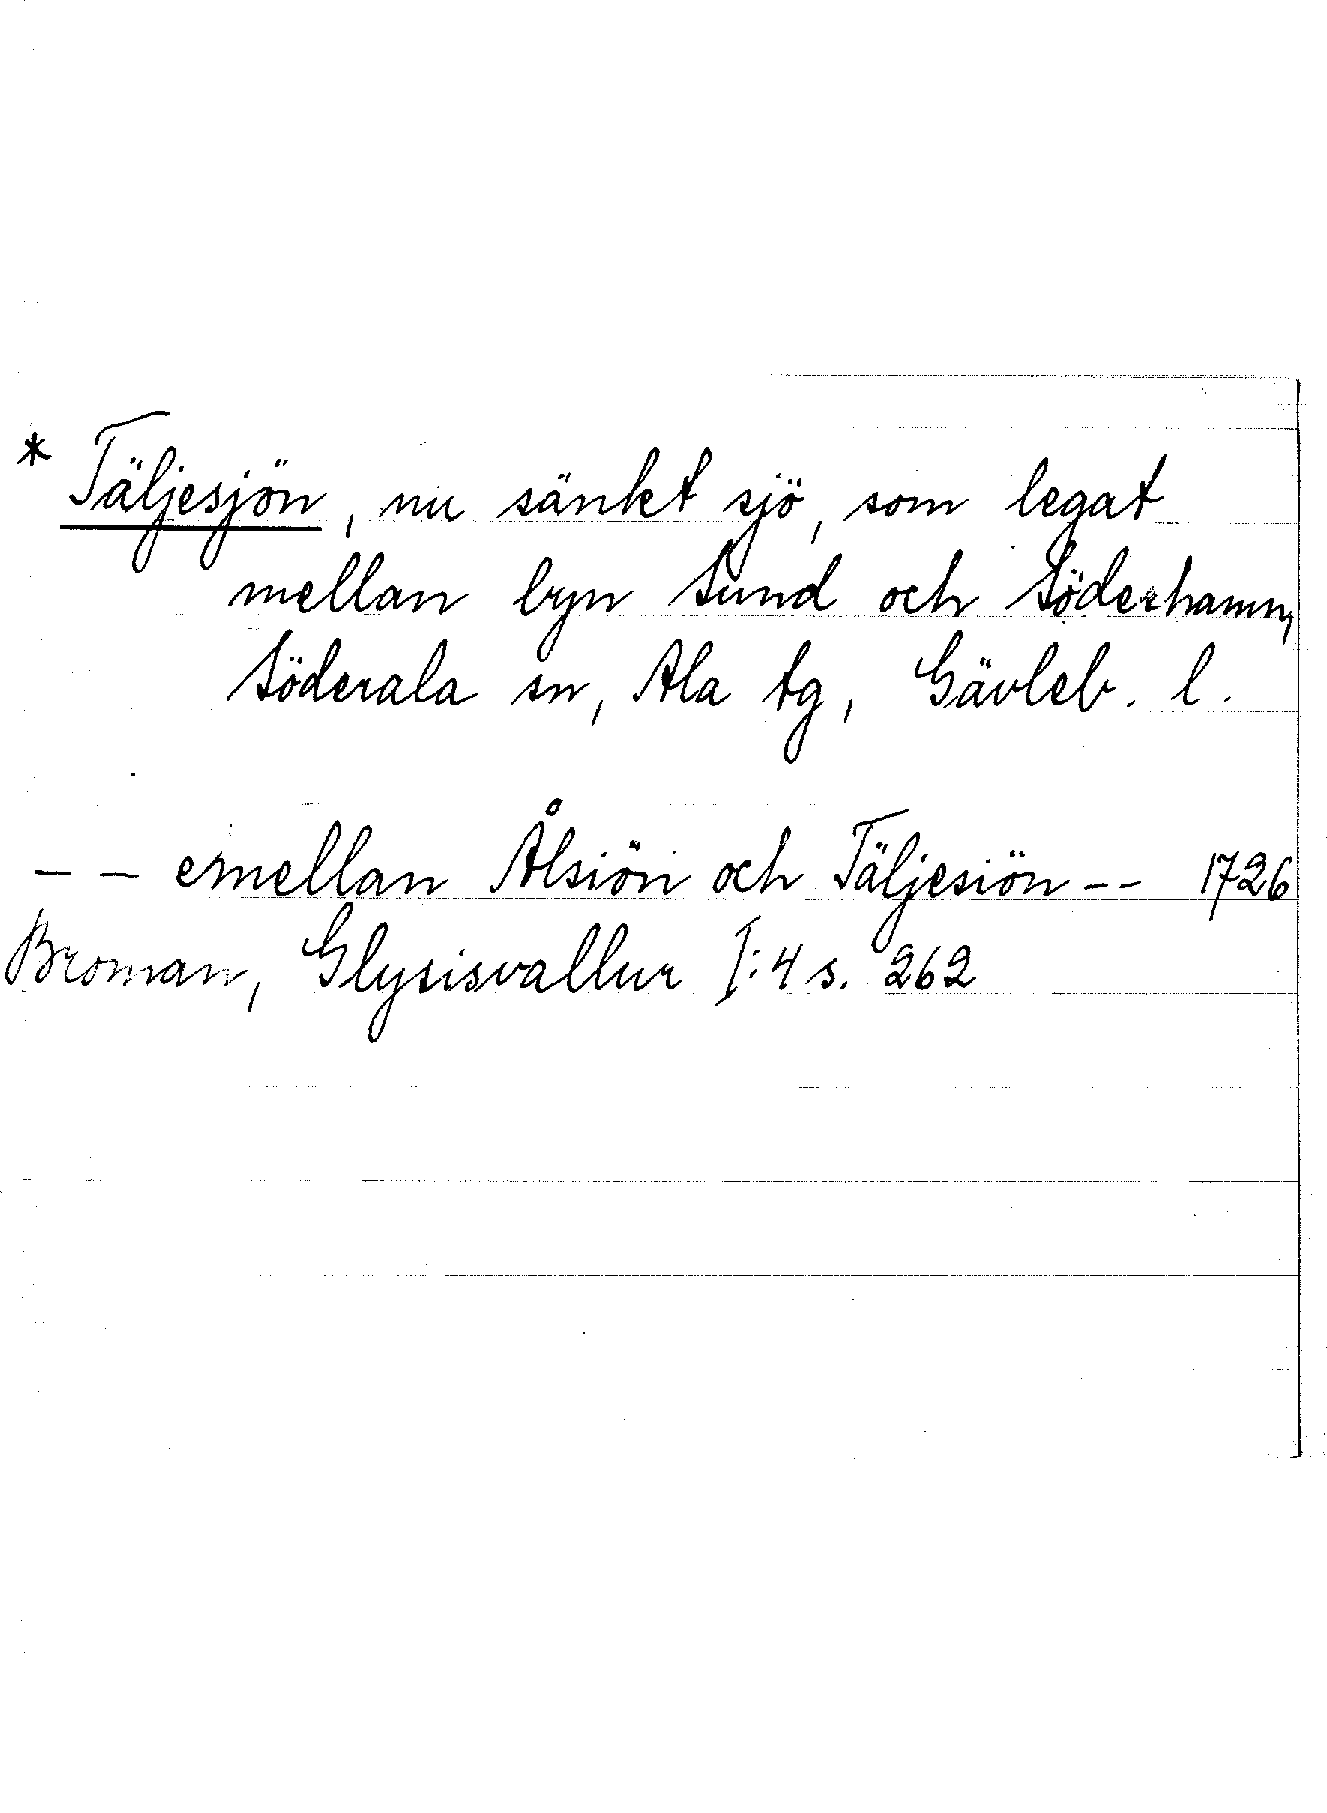 * Täljesjön, nu sänkt sjö, som legat
mellan byn Sund och Söderhamn,
Söderala sn, Ala tg, Gävleb. l.
- - emellan Ålsiön och Täljesiön - - 1726
Broman, Glysisvallur I:4 s. 262